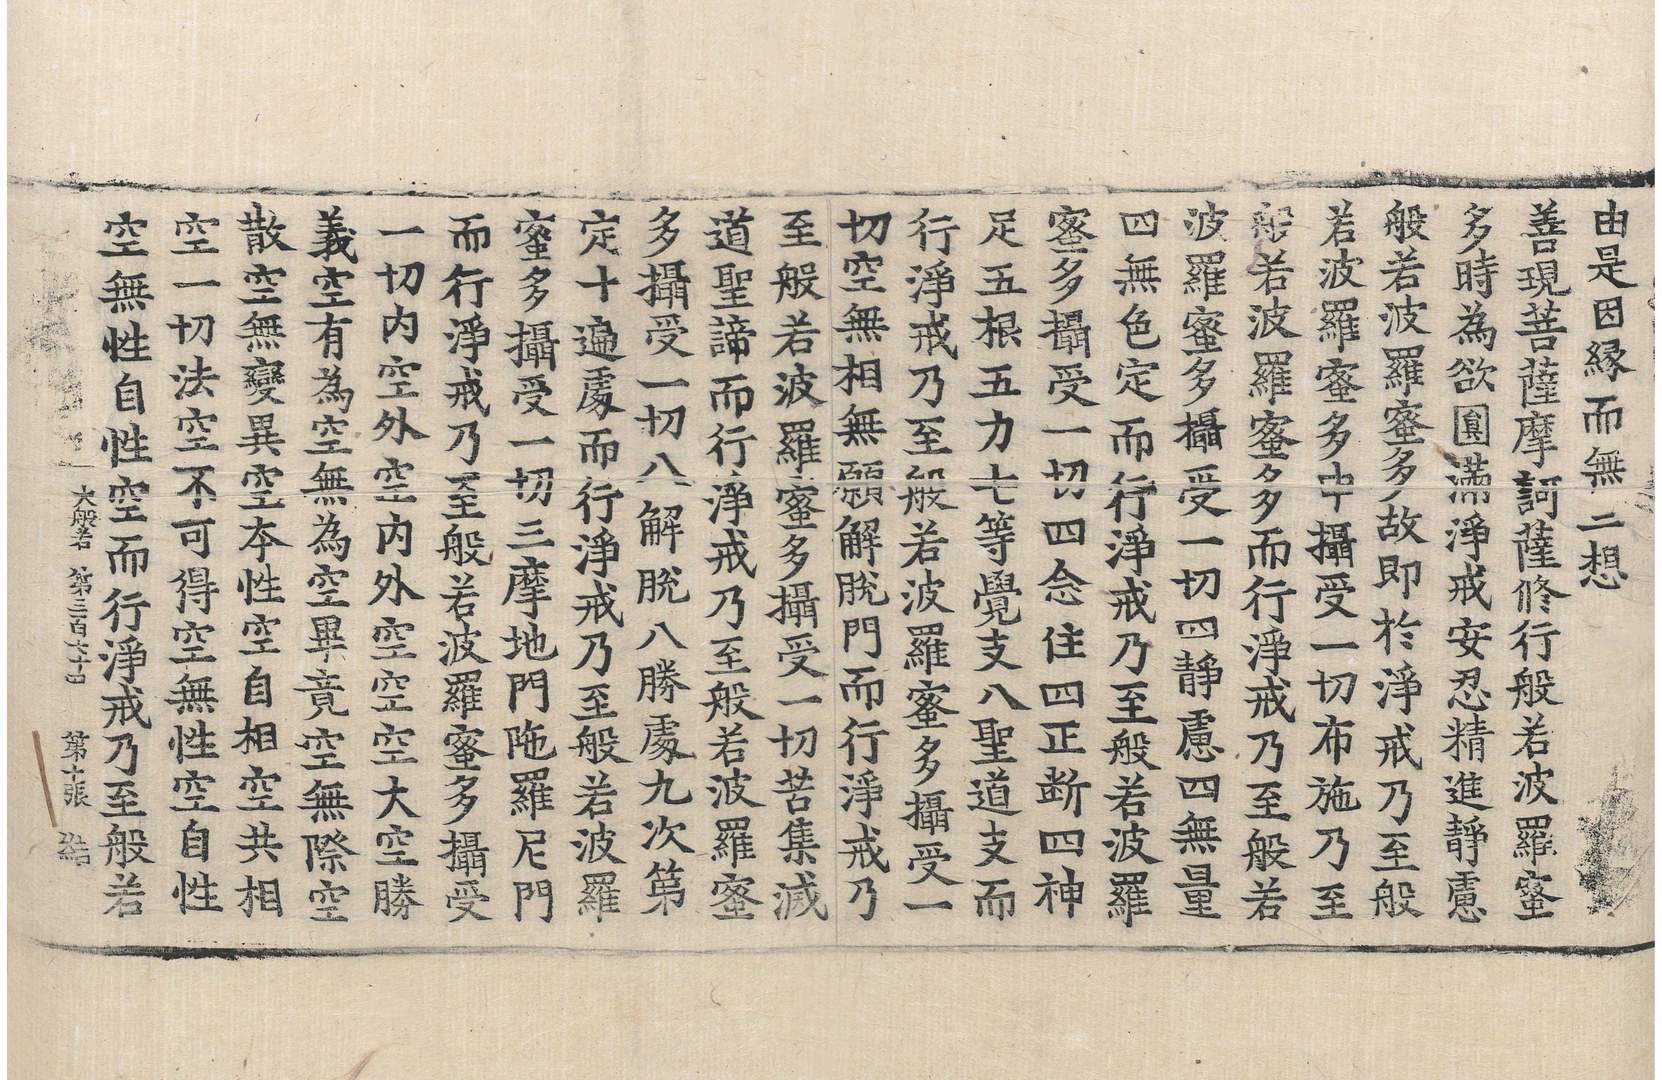 由是因縁而無二想
善現菩薩摩訶薩修行般若波羅蜜
多時為欲圓滿淨戒安忍精進靜慮
般若波羅蜜多故即於淨戒乃至般
若波羅蜜多中攝受一切布施乃至
般若波羅蜜多而行淨戒乃至般若
波羅蜜多攝受一切四靜慮四無量
四無色定而行淨戒乃至般若波羅
蜜多攝受一切四念住四正断四神
足五根五力七等覺支八聖道支而
行淨戒乃至般若波羅蜜多攝受一
切空無相無願解脫門而行淨戒乃
至般若波羅蜜多攝受一切苦集滅
道聖諦而行淨戒乃至般若波羅蜜
多攝受一切八解脫八勝處九次第
定十遍處而行淨戒乃至般若波羅
蜜多攝受一切三摩地門陁羅尼門
而行淨戒乃至般若波羅蜜多攝受
一切内空外空内外空空空大空勝
義空有為空無為空畢竟空無際空
散空無變異空本性空自相空共相
空一切法空不可得空無性空自性
空無性自性空而行淨戒乃至般若
大般若 第三百六十四 第十張